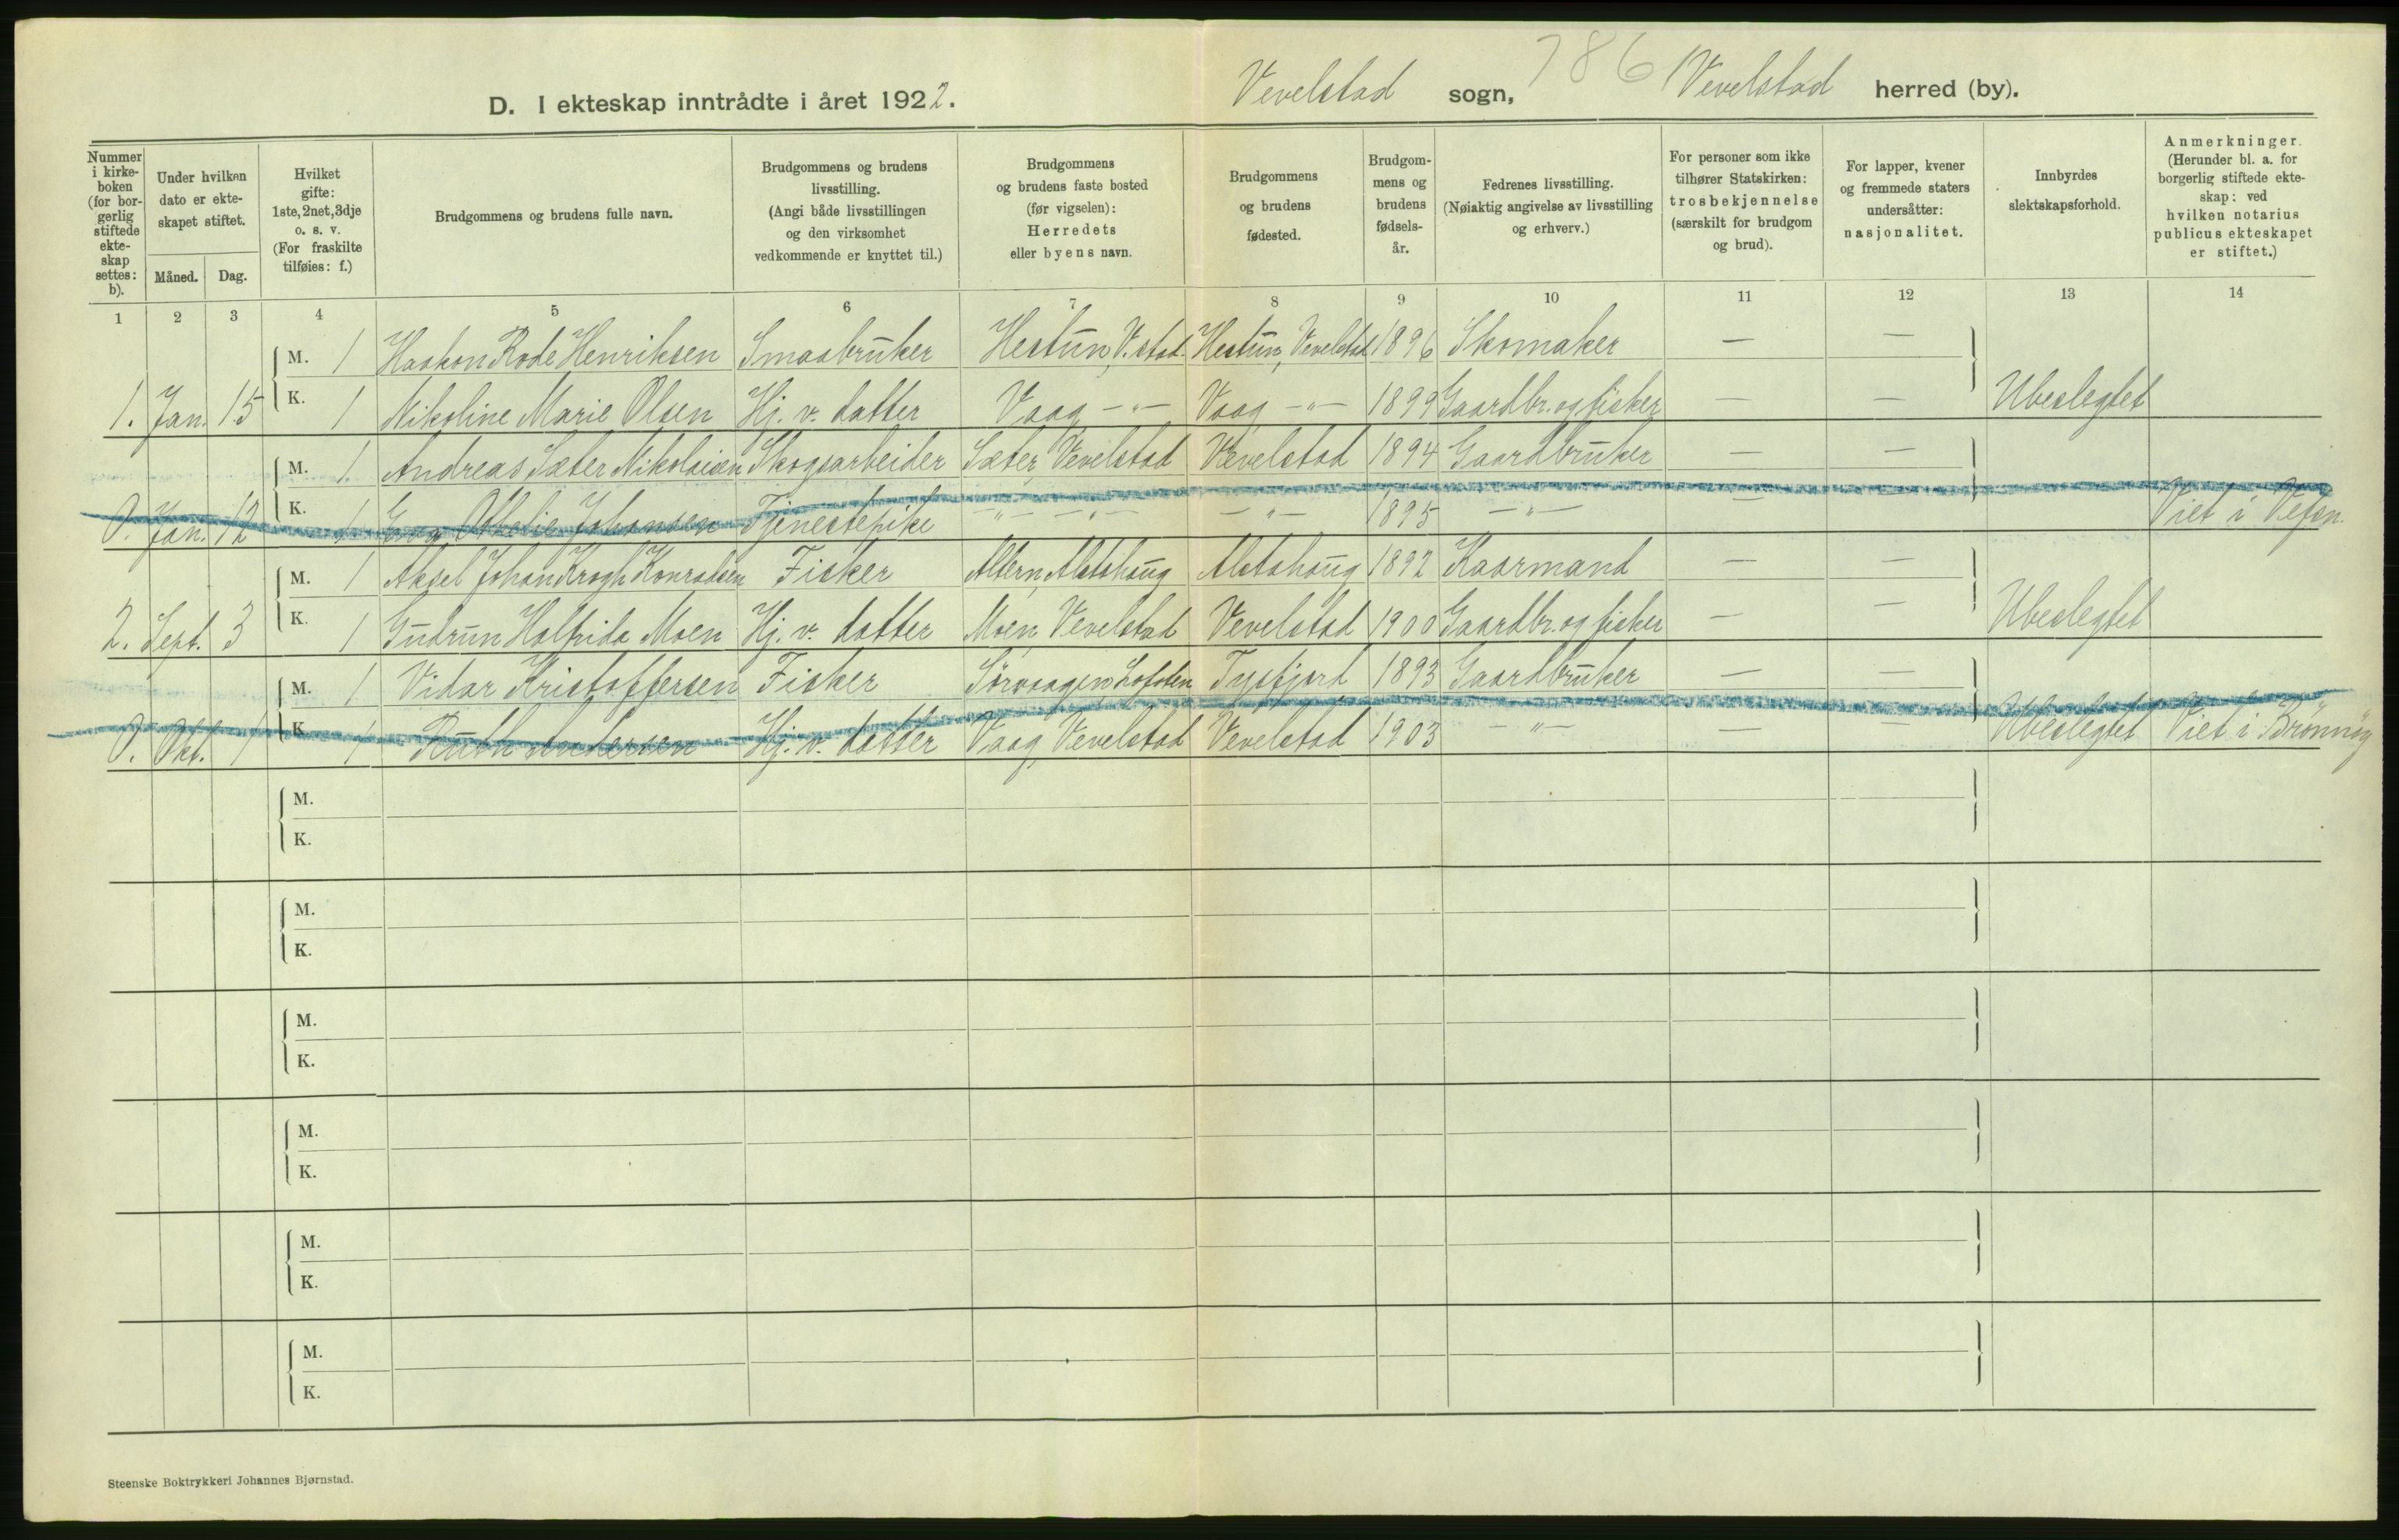 786
D. I ekteskap inntrådte i året 1922. Vevelstad sogn, Vevelstad herred (by).
Nummer i kirkeboken (for borgerlig stiftede ekteskap settes: b).
Under hvilken dato er ekteskapet stiftet.
Måned. Dag.
Hvilket gifte: 1ste, 2net, 3dje o. s. v. (For fraskilte tilføies: f.)
Brudgommens og brudens fulle navn.
Brudgommens og brudens livsstilling. (Angi både livsstillingen og den virksomhet vedkommende er knyttet til.)
Brudgommens og brudens faste bosted (før vigselen): Herredets eller byens navn.
Brudgommens og brudens fødested.
Brudgommens og brudens fødselsår.
Fedrenes livsstilling. (Nøiaktig angivelse av livsstilling og erhverv.)
For personer som ikke tilhører Statskirken: trosbekjennelse (særskilt for brudgom og brud).
For lapper, kvener og fremmede staters undersåtter: nasjonalitet.
Innbyrdes slektskapsforhold.
Anmerkninger. (Herunder bl. a. for borgerlig stiftede ekteskap: ved hvilken notarius publicus ekteskapet er stiftet.)
1 2 3 4 5 6 7 8 9 10 11 12 13 14
M. 1 Haakon Rode Henriksen Smaabruker Hestun, V.stad. Hestun, Vevelstad 1896 Skomaker — —
1. Jan. 15 K. 1 Nikoline Marie Olsen Hj. v. datter Vaag —"— Vaag —"— 1899 Gaardbr. og fisker — — Ubeslegtet
M. 1. Andreas Sæter Nikolaisen Skogsarbeider Sæter, Vevelstad Vevelstad 1894 Gaardbruker — —
0. Jan. 12 K. 1 Johansen Tjenestepike —"— —"— —"— 1895 —"— — Viet i Vefsn.
M. 1 Aksel Johan Krogh Konradsen Fisker Altern, Alstahaug Alstahaug 1892 Kaarmand — —
2. Sept. 3 K. 1 Gudrun Halfrida Moen Hj. v. datter Moen, Vevelstad Vevelstad 1900 Gaardbr. og fisker — — Ubeslegtet
M. 1 Vidar Kristoffersen Fisker Sørvaagen Lofoten Tysfjord 1893 Gaardbruker — —
0. Okt. 1 K. 1 Ruth Andersen Hj. v. datter Vaag, Vevelstad Vevelstad 1903 —"— — — Ubeslegtet Viet i Brønnøy
M.
K.
M.
K.
M.
K.
M.
K.
M.
K.
M.
K.
Steenske Boktrykkeri Johannes Bjørnstad.